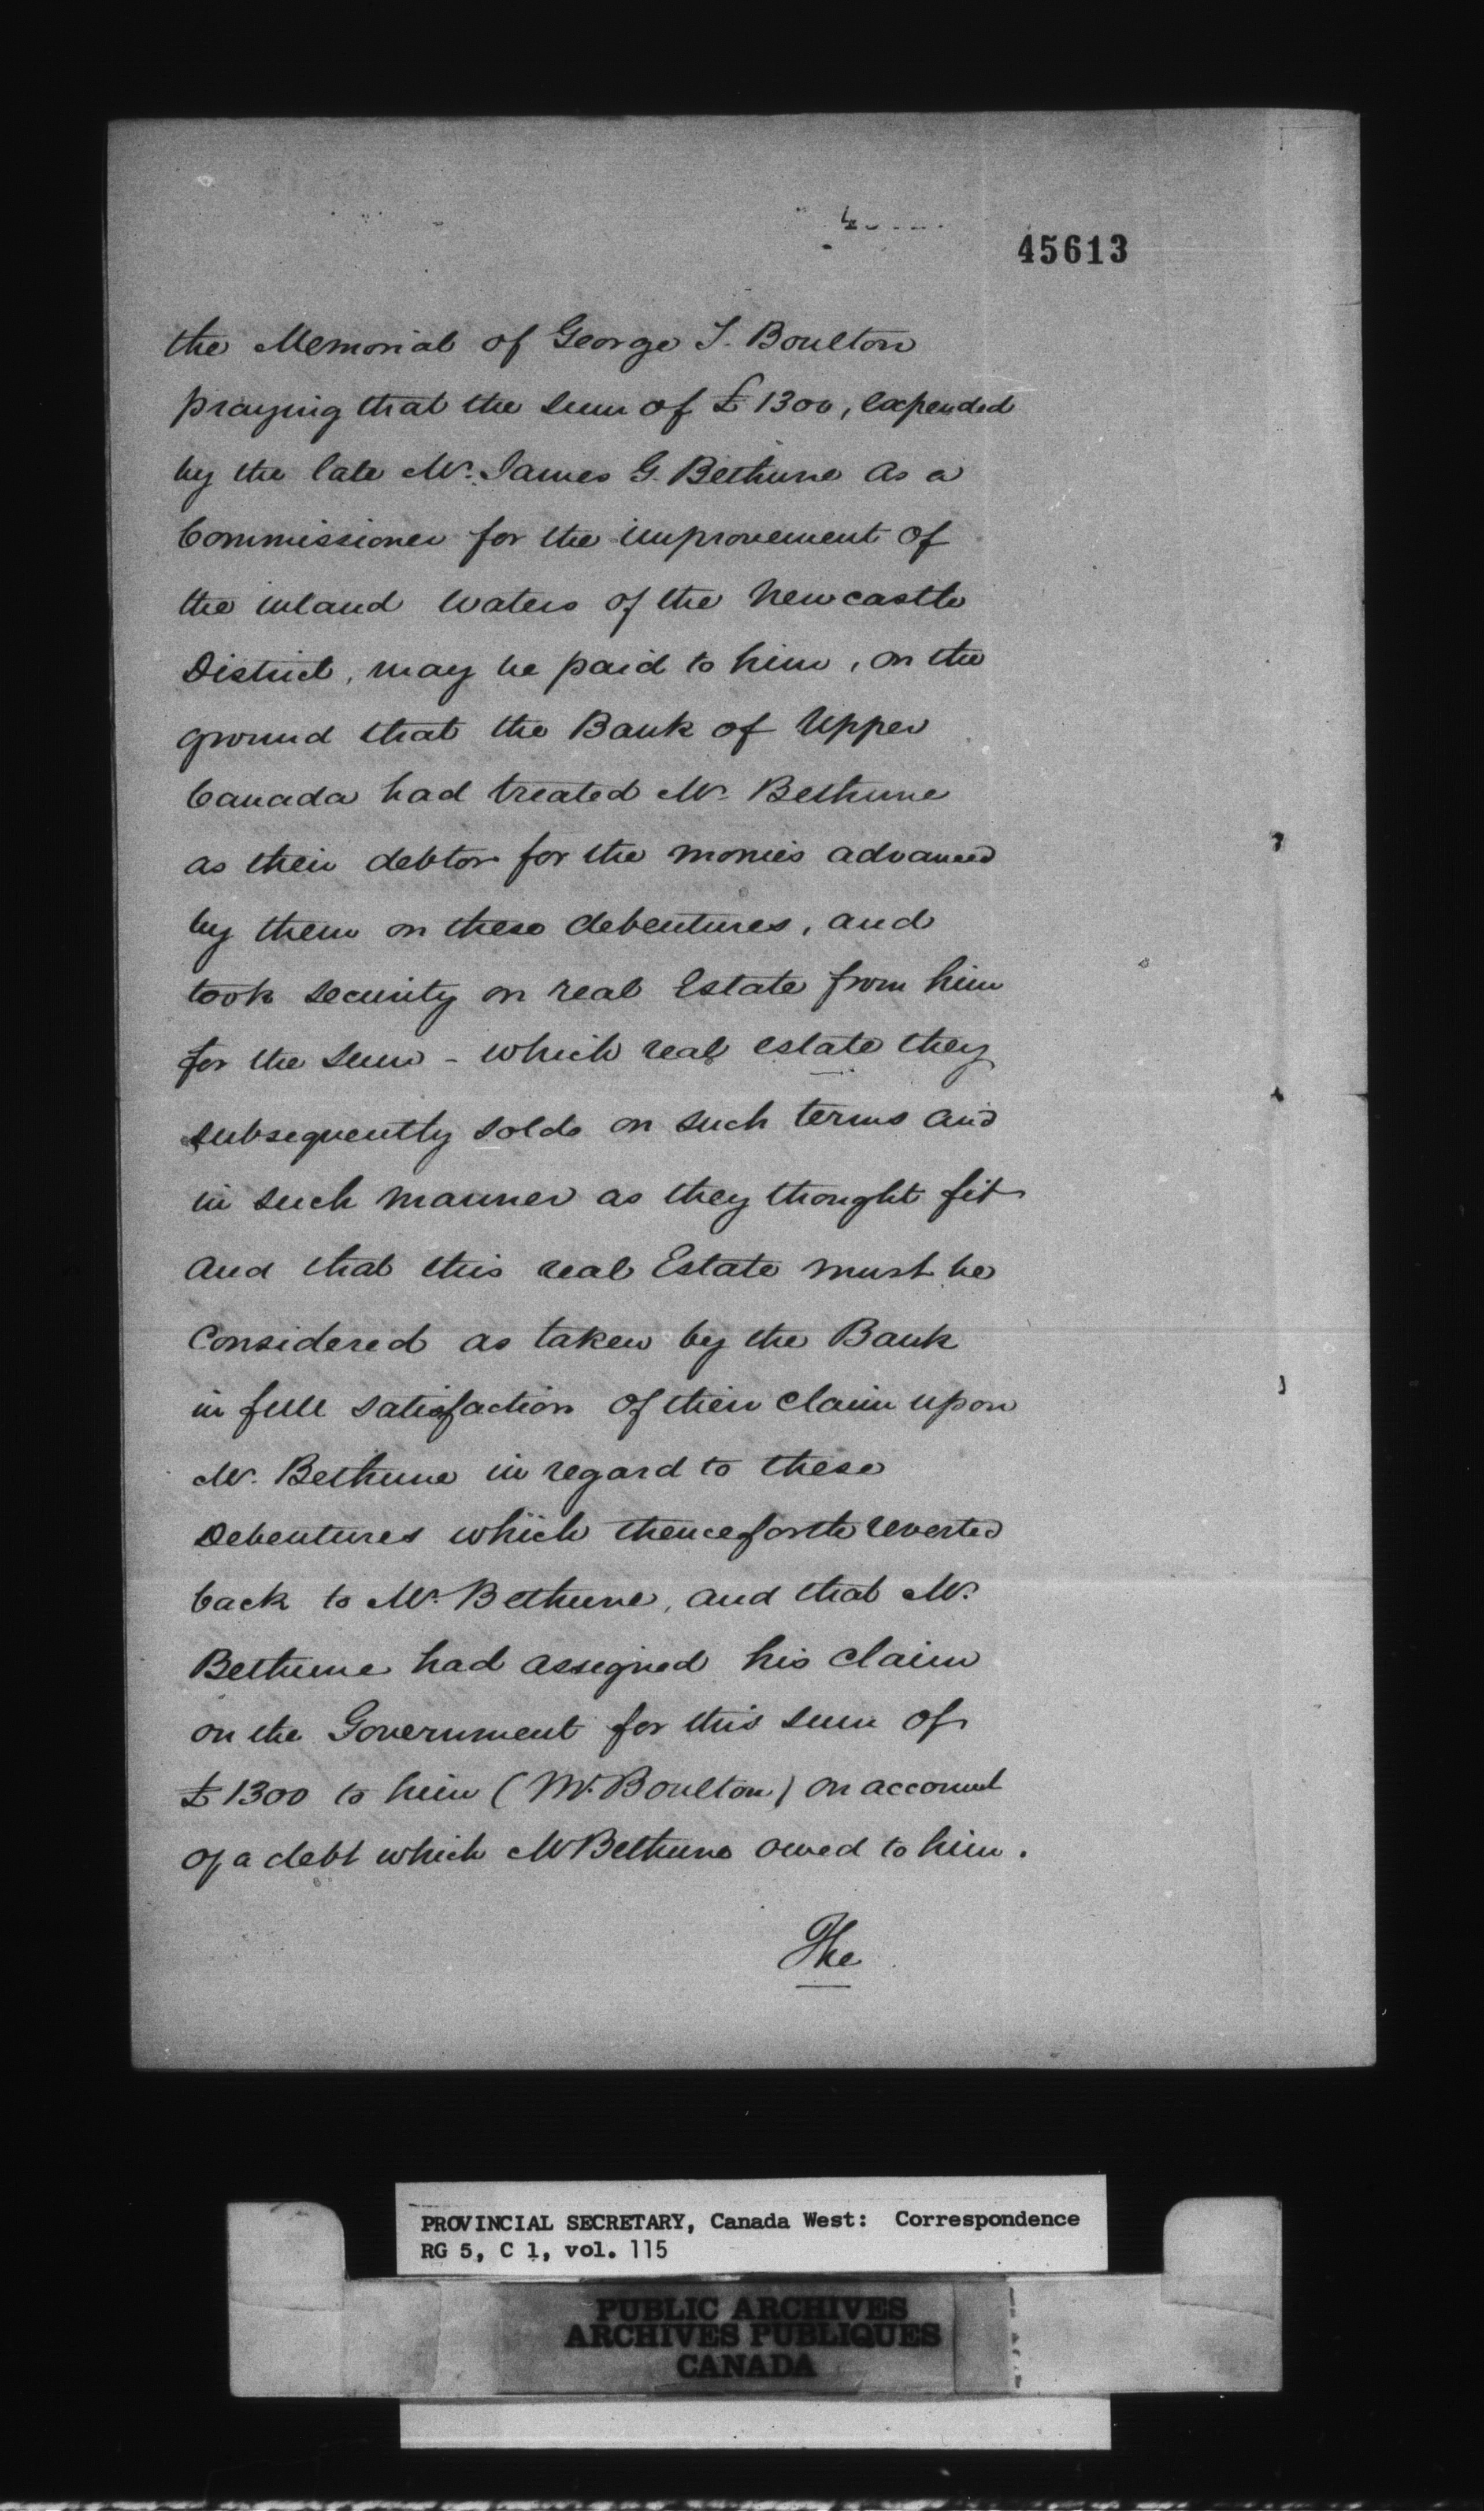 45613
the Memorial of George S. Boulton
praying that the sum of £1300, expended
by the late Mr. James G. Bethune as a
Commissioner for the improvement of
the inland waters of the Newcastle
District, may be paid to him, on the
ground that the Bank of Upper
Canada had treated Mr. Bethune
as their debtor for the monies advanced
by them on these debentures, and
took security on real Estate from him
for the sum - which real estate they
subsequently sold on such terms and
in such manner as they thought fit
and that this real Estate must be
Considered as taken by the Bank
in full satisfaction of their claim upon
Mr. Bethune in regard to these
Debentures which thenceforth reverted
back to Mr. Bethune, and that Mr.
Bethune had assigned his claim
on the Government for this sum of
£1300 to him (Mr. Boulton) on account
of a debt which Mr Bethune owed to him.
The
PROVINCIAL SECRETARY, Canada West: Correspondence
RG 5, C 1, vol. 115
PUBLIC ARCHIVES
ARCHIVES PUBLIQUES
CANADA